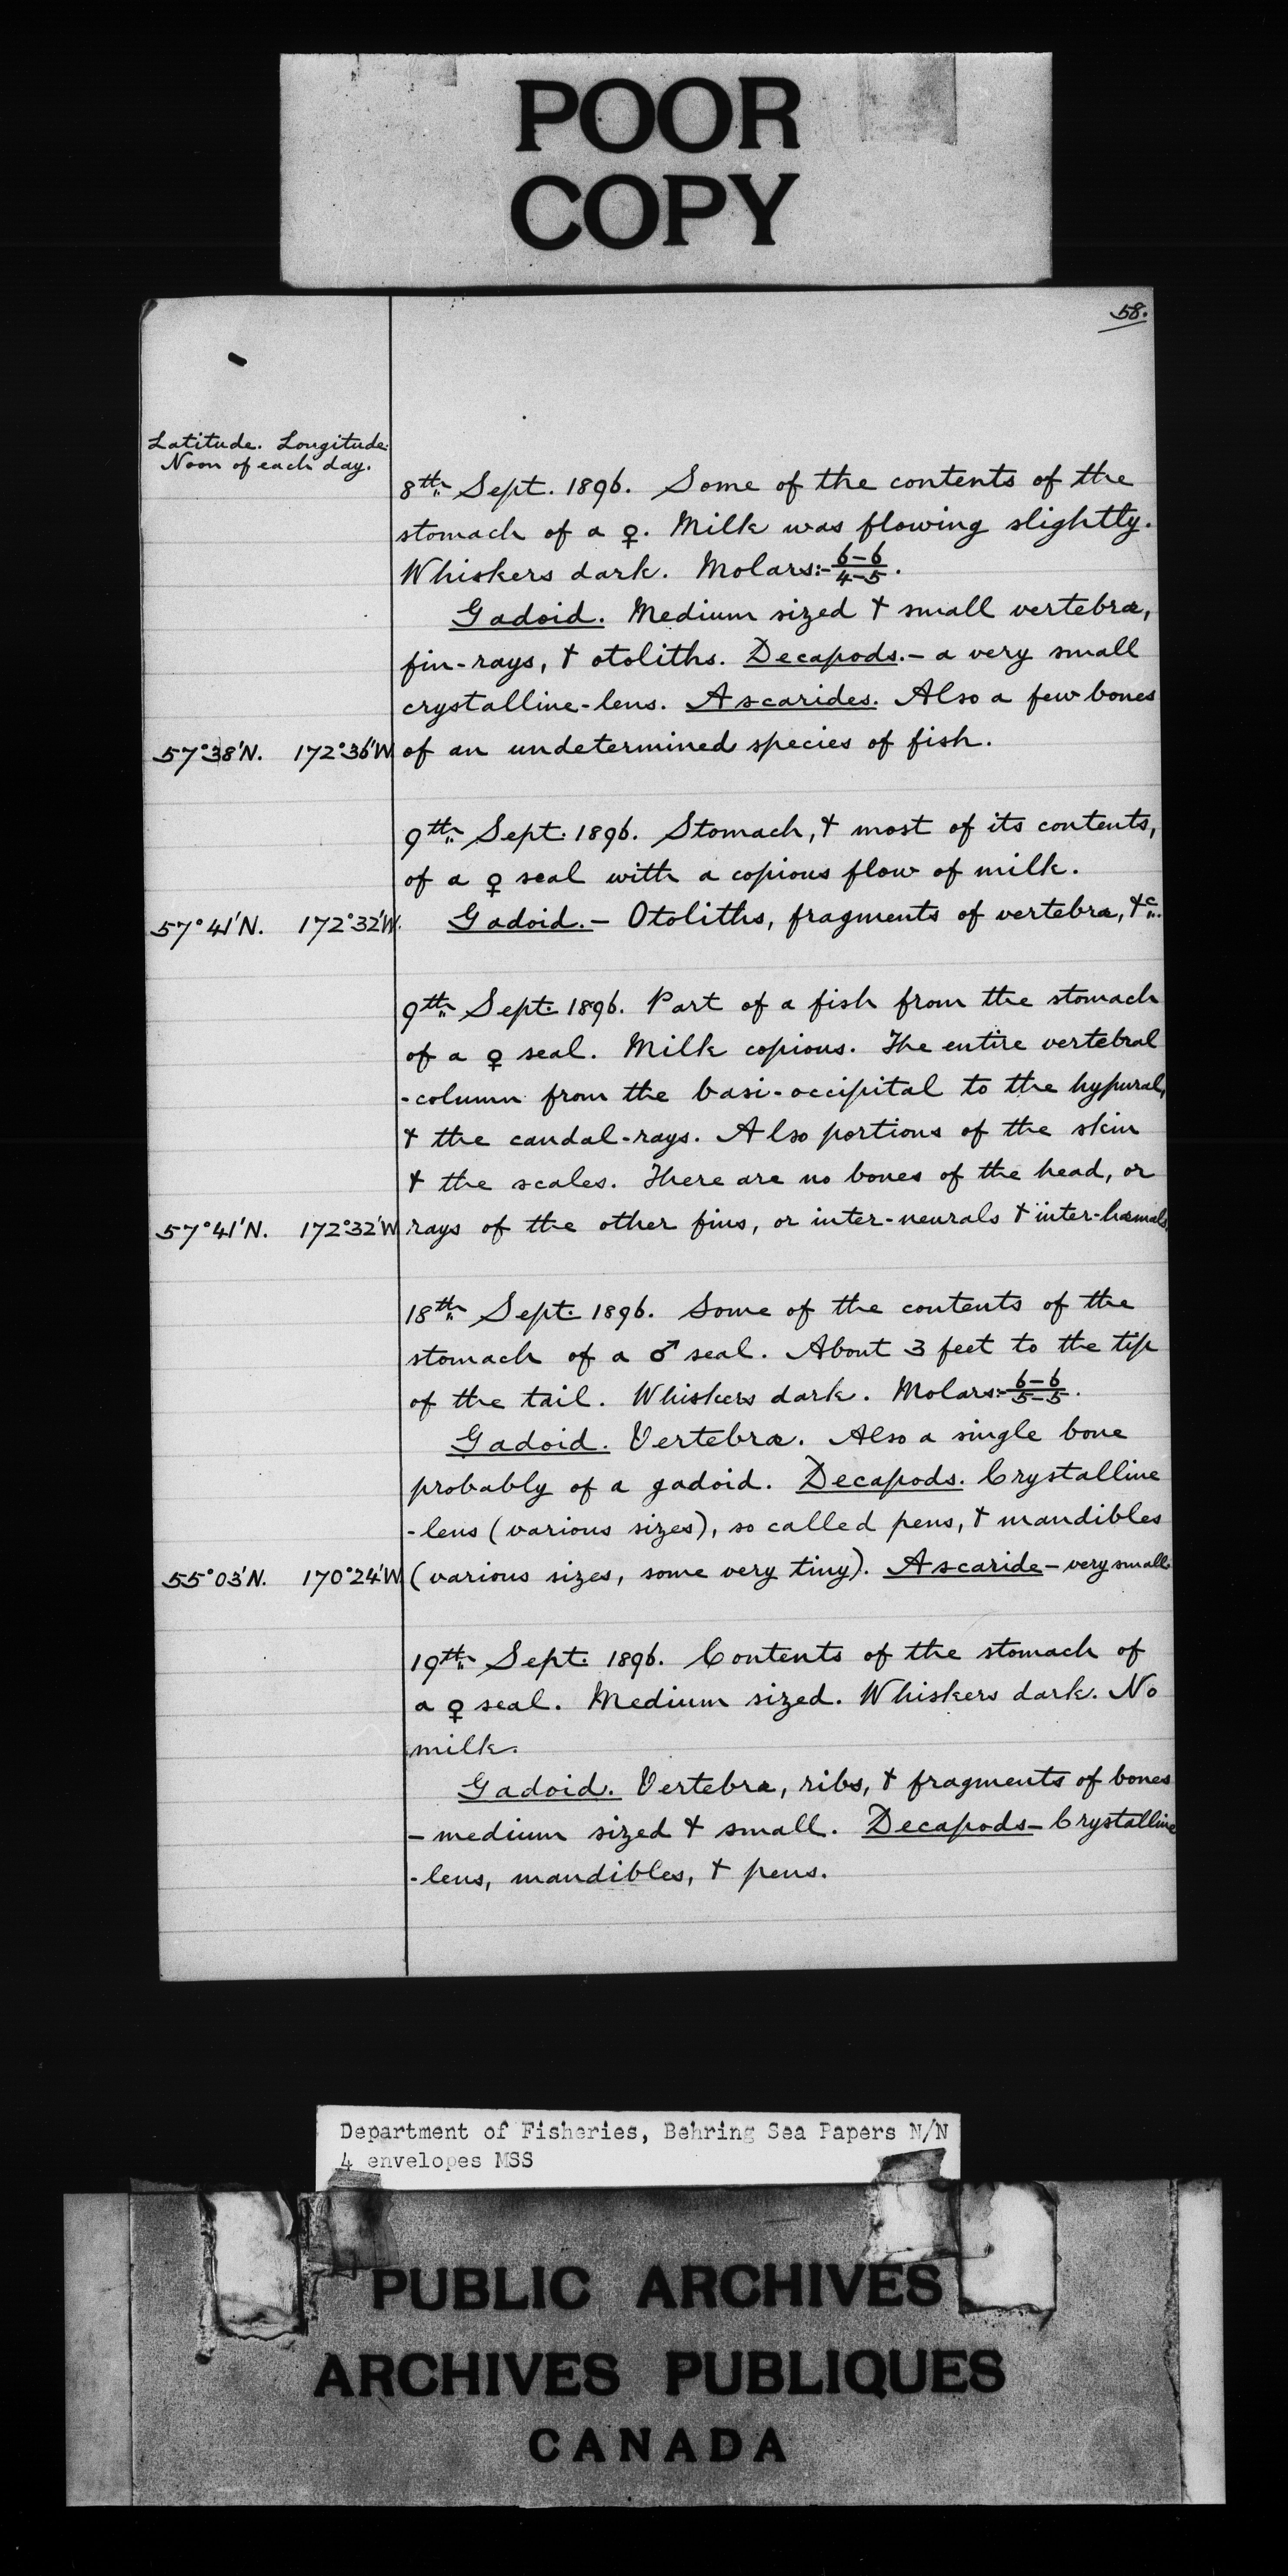 POOR
COPY
58.
Latitude. Longitude.
Noon of each day.
8th Sept. 1896. Some of the contents of the
stomach of a ♀. Milk was flowing slightly.
Whiskers dark. Molars:- 6-6/4-5.
Gadoid. Medium sized & small vertebræ,
fin-rays, & otoliths. Decapods.- a very small
crystalline-lens. Ascarides. Also a few bones
57°38'N. 172°36'W. of an undetermined species of fish.
9th Sept. 1896. Stomach, & most of its contents,
of a ♀ seal with a copious flow of milk.
57°41'N. 172°32'W. Gadoid.- Otoliths, fragments of vertebræ, &c.
9th Sept. 1896. Part of a fish from the stomach
of a ♀ seal. Milk copious. The entire vertebral
-column from the basi-occipital to the hypural,
& the caudal-rays. Also portions of the skin
& the scales. There are no bones of the head, or
57°41'N. 172°32'W. rays of the other fins, or inter-neurals & inter-hæmals.
18th Sept. 1896. Some of the contents of the
stomach of a ♂ seal. About 3 feet to the tip
of the tail. Whiskers dark. Molars:- 6-6/5-5.
Gadoid. Vertebræ. Also a single bone
probably of a gadoid. Decapods. Crystalline
-lens (various sizes), so called pens, & mandibles
55°03'N. 170°24'W. (various sizes, some very tiny). Ascaride - very small.
19th Sept. 1896. Contents of the stomach of
a ♀ seal. Medium sized. Whiskers dark. No
milk.
Gadoid. Vertebræ, ribs, & fragments of bones
- medium sized & small. Decapods - Crystalline
-lens, mandibles, & pens.
Department of Fisheries, Behring Sea Papers N/N
4 envelopes MSS
PUBLIC ARCHIVES
ARCHIVES PUBLIQUES
CANADA